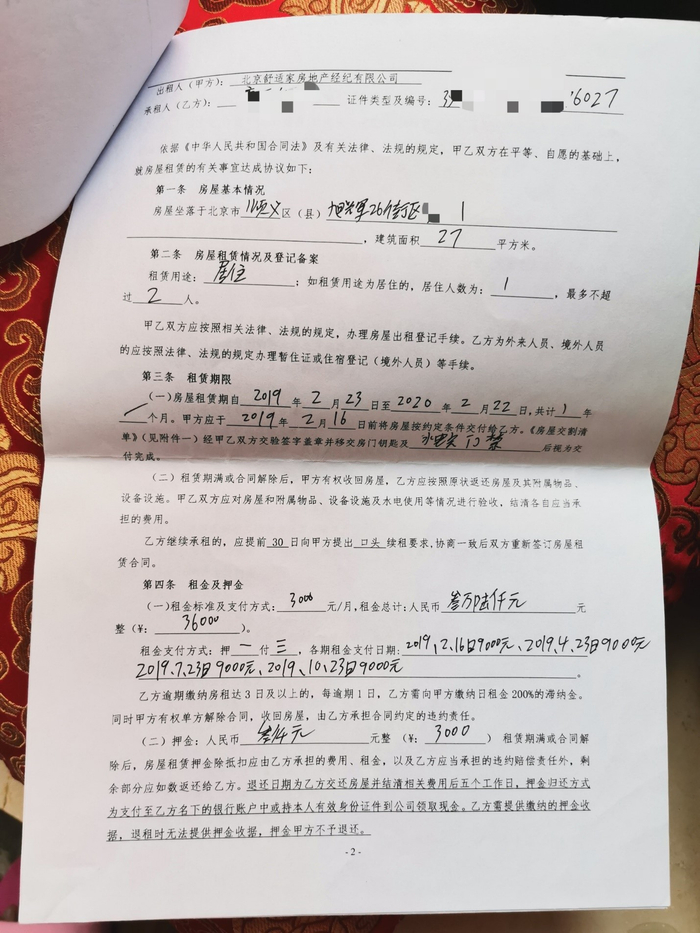 出租人（甲方）：北京舒适家房地产经纪有限公司
承租人（乙方）： 证件类型及编号：35 6027
依据《中华人民共和国合同法》及有关法律、法规的规定，甲乙双方在平等、自愿的基础上，
就房屋租赁的有关事宜达成协议如下：
第一条 房屋基本情况
房屋坐落于北京市 顺义 区（县） 旭辉里26街区 1
，建筑面积 27 平方米。
第二条 房屋租赁情况及登记备案
租赁用途： 居住 ；如租赁用途为居住的，居住人数为： 1 ，最多不超
过 2 人。
甲乙双方应按照相关法律、法规的规定，办理房屋出租登记手续。乙方为外来人员、境外人员
的应按照法律、法规的规定办理暂住证或住宿登记（境外人员）等手续。
第三条 租赁期限
（一）房屋租赁期自 2019 年 2 月 23 日至 2020 年 2 月 22 日，共计 1 年
/ 个月。甲方应于 2019 年 2 月 16 日前将房屋按约定条件交付给乙方。《房屋交割清
单》（见附件一）经甲乙双方交验签字盖章并移交房门钥匙及 水电卡 门禁 后视为交
付完成。
（二）租赁期满或合同解除后，甲方有权收回房屋，乙方应按照原状返还房屋及其附属物品、
设备设施。甲乙双方应对房屋和附属物品、设备设施及水电使用等情况进行验收，结清各自应当承
担的费用。
乙方继续承租的，应提前 30 日向甲方提出 口头 续租要求，协商一致后双方重新签订房屋租
赁合同。
第四条 租金及押金
（一）租金标准及支付方式： 3000 元/月，租金总计：人民币 叁万陆仟元 元
整（￥： 36000 ）。
租金支付方式：押 一 付 三 ，各期租金支付日期：2019，2，16日9000元、2019，4，23日9000元
2019，7，23日9000元、2019，10，23日9000元 。
乙方逾期缴纳房租达3日及以上的，每逾期1日，乙方需向甲方缴纳日租金200%的滞纳金。
同时甲方有权单方解除合同，收回房屋，由乙方承担合同约定的违约责任。
（二）押金：人民币 叁仟元 元整（￥： 3000 ） 租赁期满或合同解
除后，房屋租赁押金除抵扣应由乙方承担的费用、租金，以及乙方应当承担的违约赔偿责任外，剩
余部分应如数返还给乙方。退还日期为乙方交还房屋并结清相关费用后五个工作日，押金归还方式
为支付至乙方名下的银行账户中或持本人有效身份证件到公司领取现金。乙方需提供缴纳的押金收
据，退租时无法提供押金收据，押金甲方不予退还。
- 2 -